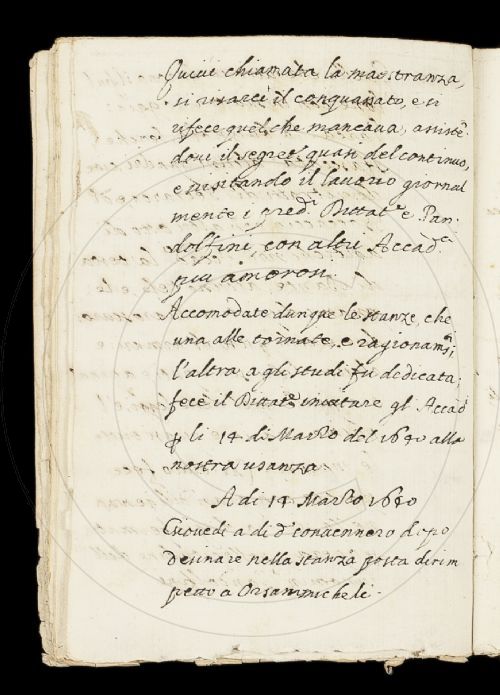 Quiui chiamata la maestranza,
si risarcì il conquassato, e si
rifece quel, che mancaua, assistē
doui il segret.º quasi del continuo,
e uisitando il lauorio giornal
mente i pred.i Dittat.e e Pan-
dolfini con altri Accad.ci
più amorosi.
Accomodate dunque le stanze, che
una alle tornate, e ragionam.ti,
l'altra a gli studi fu dedicata;
fece il Dittat.e inuitare gl' Accad
ꝑ li 14 di Marzo del 1640 alla
nostra usanza
A dì 14 Marzo 1640
Giouedi a di dº conuennero dopo
desinare nella stanza posta dirim
petto a Orsanmicheli.